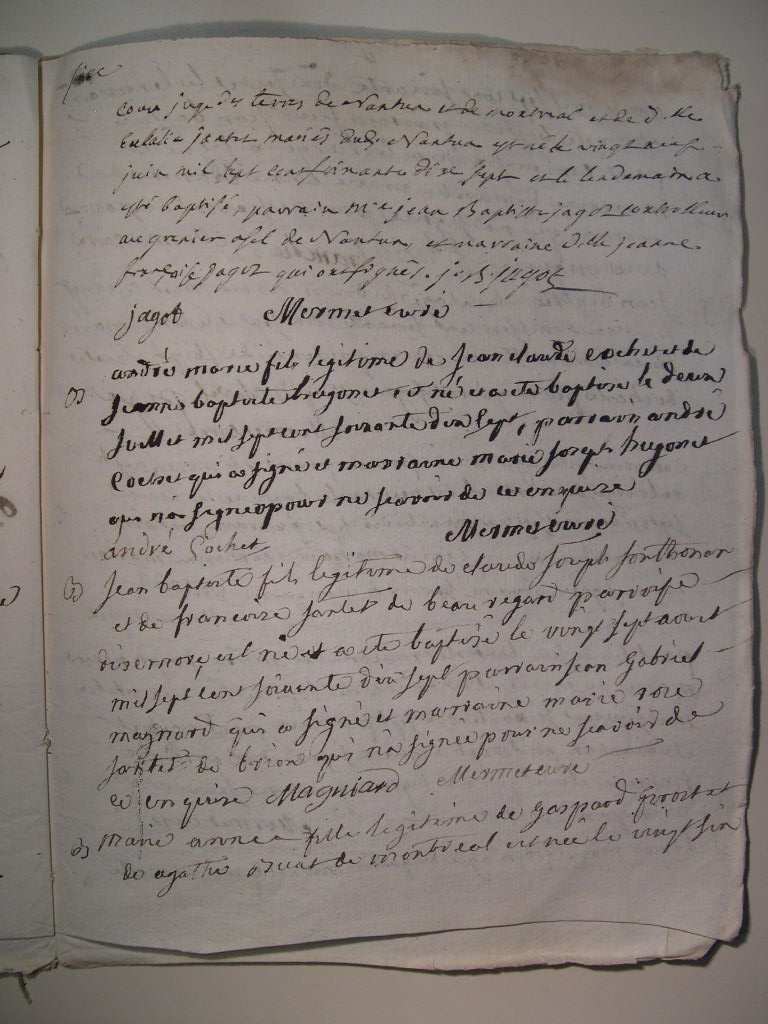 cour juge des terres de Nantua et de montreal et de d.lle
Eulalie jantet mariés dudt Nantua est né le vingt neuf
juin mil sept cent soixante dixe sept et le lendemain a
esté baptisé, parrain mre jean Baptiste jagot controlleur
au grenier asel de Nantua, et marraine d.lle jeanne
françoise jagot qui ont signés. j. B. jagot
jagot Mermet curé
andré marie fils legitime de jean claude cochet et de
jeanne baptiste hugonet est né et a ete baptisé le deux
juillet mil sept cent soixante dix sept, parrain andré
cochet qui a signé et marraine marie joseph hugonet
qui n'a signé pour ne scavoir de ce enquise
andré Cochet Mermet curé
jean baptiste fils legitime de claude joseph sonthonax
et de francoise jantet de beau regard paroisse
est né et a ete baptisé le vingt sept aout
mil sept cent soixante dix sept parrain jean Gabriel
magnard qui a signé et marraine marie rose
jantet de brion qui n'a signée pour ne scavoir de
ce enquise Magniard Mermet curé
marie anne fille legitime de Gaspard
de agathe de montreal est née le vingt sin